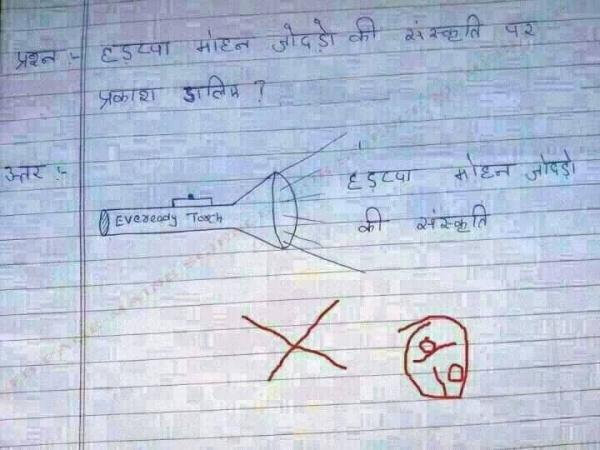 प्रश्न :- हड़प्पा मोहन जोदड़ो की संस्कृति पर
प्रकाश डालिए ?
उत्तर :- हड़प्पा मोहन जोदड़ो
Eveready Torch की संस्कृति